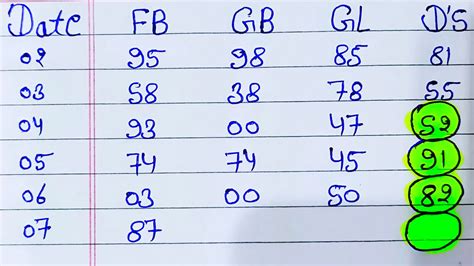 Date FB GB GL D'S
02 95 98 85 81
03 58 38 78 55
04 93 00 47 52
05 74 74 45 91
06 03 00 50 82
07 87